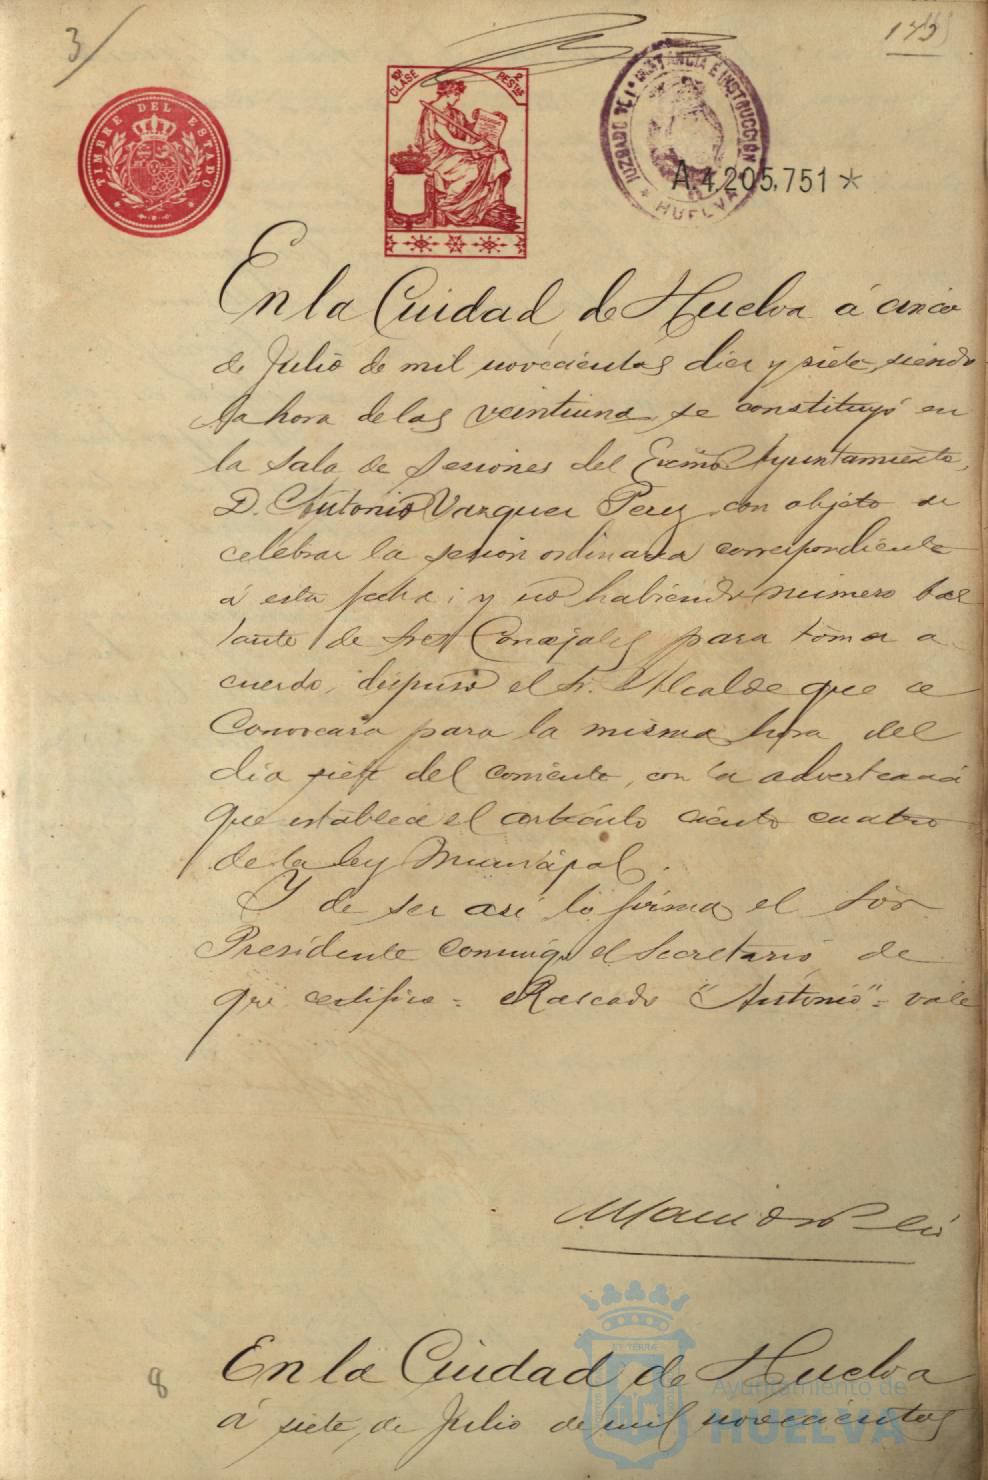 3/
TIMBRE DEL ESTADO
10ª CLASE
2 PESTAS
JUZGADO DE 1ª INSTANCIA E INSTRUCCIÓN
* HUELVA *
A.4.205,751 *
En la Ciudad de Huelva á cinco
de Julio de mil novecientos diez y siete, siendo
la hora de las veintiuna, se constituyó en
la sala de sesiones del Excmo Ayuntamiento,
D. Antonio Vazquez Perez con objeto de
celebrar la sesion ordinaria correspondiente
á esta fecha; y no habiendo número bas
tante de Sres Concejales para tomar a
cuerdo, dispuso el Sr. Alcalde que se
Convocara para la misma hora del
dia siete del corriente, con la advertencia
que establece el articulo ciento cuatro
de la ley Municipal.
Y de ser asi lo firma el Sor
Presidente conmigo el Secretario de
que certifico = Rascado "Antonio" = vale
8
En la Ciudad de Huelva
á siete de Julio de mil novecientos
Ayuntamiento de
HUELVA